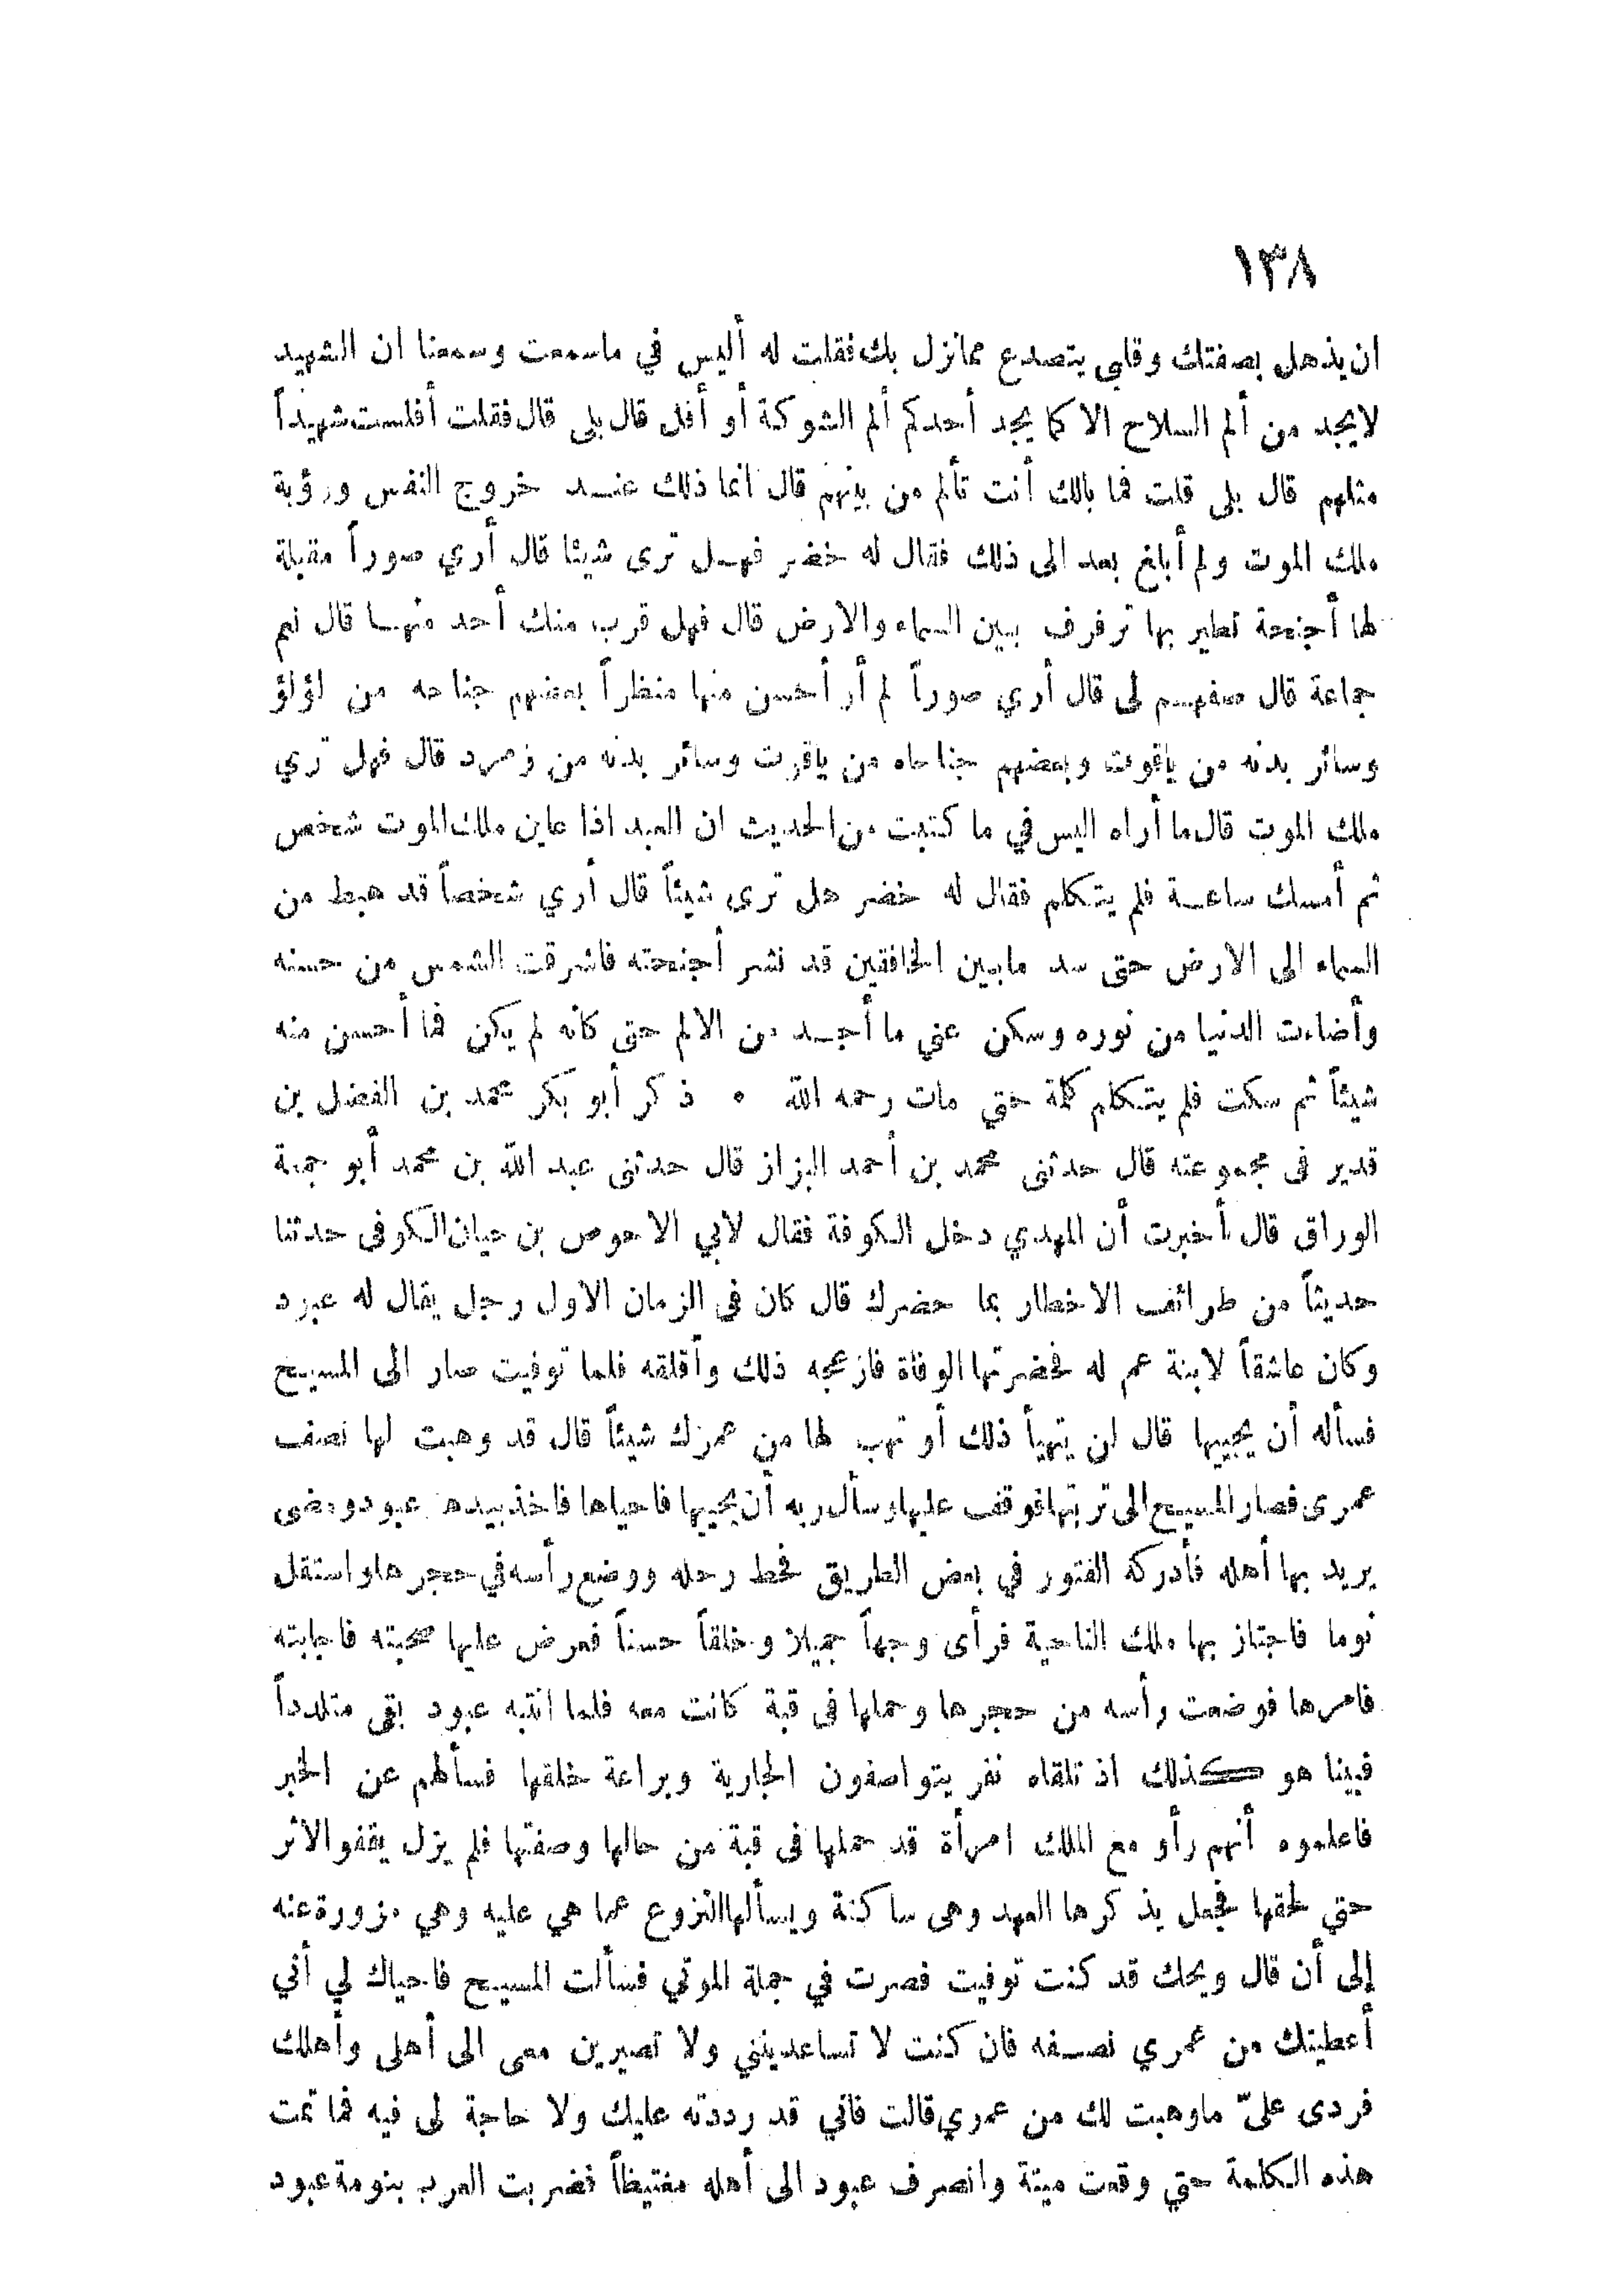 ١٣٨
ان يذهل بصفتك وقلبي يتصدع مما نزل بك فقلت له أليس في ما سمعت وسمعنا ان الشهيد
لا يجد من ألم السلاح الا كما يجد أحدكم ألم الشوكة أو أقل قال بلى قال فقلت أفلست شهيداً
مثلهم قال بلى قلت فما بالك أنت تألم من بينهم قال انما ذلك عنـد خروج النفس ورؤية
ملك الموت ولم أبلغ بعد الى ذلك فقال له خضر فهـل ترى شيئا قال أري صوراً مقبلة
لها أجنحة تطير بها ترفرف بين السماء والارض قال فهل قرب منك أحد منهـا قال نعم
جماعة قال صفهـم لى قال أري صوراً لم أر أحسن منها منظراً بعضهم جناحه من لؤلؤ
وسائر بدنه من ياقوت وبعضهم جناحاه من ياقوت وسائر بدنه من زمرد قال فهل تري
ملك الموت قال ما أراه اليس في ما كتبت من الحديث ان العبد اذا عاين ملك الموت شخص
ثم أمسك ساعـة فلم يتكلم فقال له خضر هل ترى شيئاً قال أري شخصاً قد هبط من
السماء الى الارض حتى سد مابين الخافقين قد نشر أجنحته فاشرقت الشمس من حسنه
وأضاءت الدنيا من نوره وسكن عني ما أجـد من الالم حتى كأنه لم يكن فما أحسن منه
شيئاً ثم سكت فلم يتكلم كلمة حتي مات رحمه الله ٥ ذكر أبو بكر محمد بن الفضل بن
قدير فى مجموعته قال حدثنى محمد بن أحمد البزاز قال حدثنى عبد الله بن محمد أبو جمعة
الوراق قال أخبرت أن المهدي دخل الكوفة فقال لابي الاحوص بن حيان الكوفى حدثنا
حديثاً من طرائف الاخطار بما حضرك قال كان فى الزمان الاول رجل يقال له عبود
وكان عاشقاً لابنة عم له فحضرتها الوفاة فازعجه ذلك وأقلقه فلما توفيت صار الى المسيح
فسأله أن يحييها قال لن يتهيأ ذلك أو تهب لها من عمرك شيئاً قال قد وهبت لها نصف
عمرى فصار المسيح الى تربتها فوقف عليها وسأل ربه أن يحييها فاحياها فاخذ بيدها عبود ومضى
يريد بها أهله فأدركه الفتور في بعض الطريق فحط رحله ووضع رأسه في حجرها واستقل
نوما فاجتاز بها ملك الناحية فرأى وجهاً جميلا وخلقاً حسناً فعرض عليها صحبته فاجابته
فامرها فوضعت رأسه من حجرها وحملها فى قبة كانت معه فلما انتبه عبود بقى متلدداً
فبينا هو كذلك اذ تلقاه نفر يتواصفون الجارية وبراعة خلقها فسألهم عن الخبر
فاعلموه أنهم رأو مع الملك امرأة قد حملها فى قبة من حالها وصفتها فلم يزل يقفو الاثر
حتي لحقها فجعل يذكرها العهد وهى ساكنة ويسألها النزوع عما هي عليه وهي مزورة عنه
إلى أن قال ويحك قد كنت توفيت فصرت في جملة الموتي فسألت المسيح فاحياك لي أني
أعطيتك من عمري نصـفه فان كنت لا تساعدينني ولا تصيرين معى الى أهلى وأهلك
فردى علىّ ماوهبت لك من عمري قالت فاني قد رددته عليك ولا حاجة لى فيه فما تمت
هذه الكلمة حتي وقعت ميتة وانصرف عبود الى أهله مغتيظاً فضربت العرب بنومة عبود